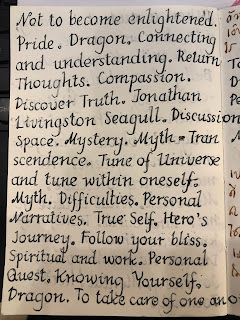 Not to become enlightened.
Pride. Dragon. Connecting
and understanding. Return
Thoughts. Compassion.
Discover Truth. Jonathan
Livingston Seagull. Discussion
Space. Mystery. Myth = Tran
scendence. Tune of Universe
and tune within oneself.
Myth. Difficulties. Personal
Narratives. True Self. Hero's
Journey. Follow your bliss.
Spiritual and work. Personal
Quest. Knowing Yourself.
Dragon. To take care of one ano